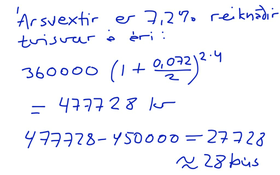 Ársvextir er 7,2% reiknaðir
tvisvar á ári:
360000 (1 + 0,072/2)^2·4
= 477728 kr
477728 - 450000 = 27728
≈ 28 þús